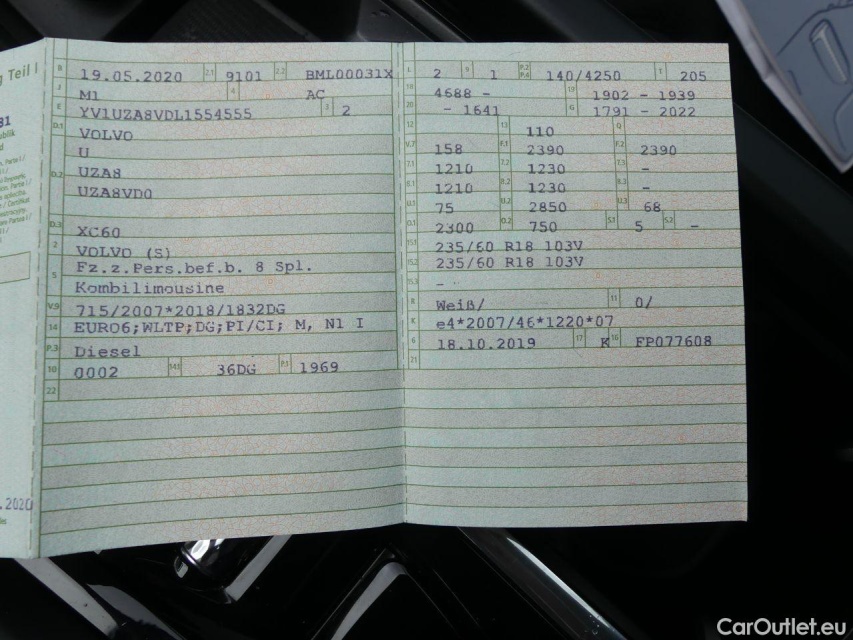 g Teil I
B 19.05.2020 2.1 9101 2.2 BML00031X
J M1 4 AC
E YV1UZA8VDL1554555 3 2
D.1 VOLVO
U
D.2 UZA8
UZA8VD0
D.3 XC60
2 VOLVO (S)
5 Fz.z.Pers.bef.b. 8 Spl.
Kombilimousine
V.9 715/2007*2018/1832DG
14 EURO6;WLTP;DG;PI/CI; M, N1 I
P.3 Diesel
10 0002 14.1 36DG P.1 1969
22
L 2 9 1 P.2 P.4 140/4250 T 205
18 4688 - 19 1902 - 1939
20 - 1641 G 1791 - 2022
12 13 110 Q
V.7 158 F.1 2390 F.2 2390
7.1 1210 7.2 1230 7.3 -
8.1 1210 8.2 1230 8.3 -
U.1 75 U.2 2850 U.3 68
O.1 2300 O.2 750 S.1 5 S.2 -
15.1 235/60 R18 103V
15.2 235/60 R18 103V
15.3 -
R Weiß/ 11 0/
K e4*2007/46*1220*07
6 18.10.2019 17 K 16 FP077608
21
.2020
CarOutlet.eu